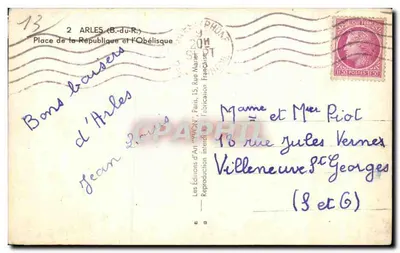 13
2 ARLES (B.-du-R.)
Place de la République et l'Obélisque
Bons baisers
d'Arles
Jean Louis
Les Editions d'Art Paris, 15, Rue
Reproduction Fabrication Française
Mame et Mser Piot
13 rue Jules Vernes
Villeneuve St Georges
(S et O)
POSTES
CPArama